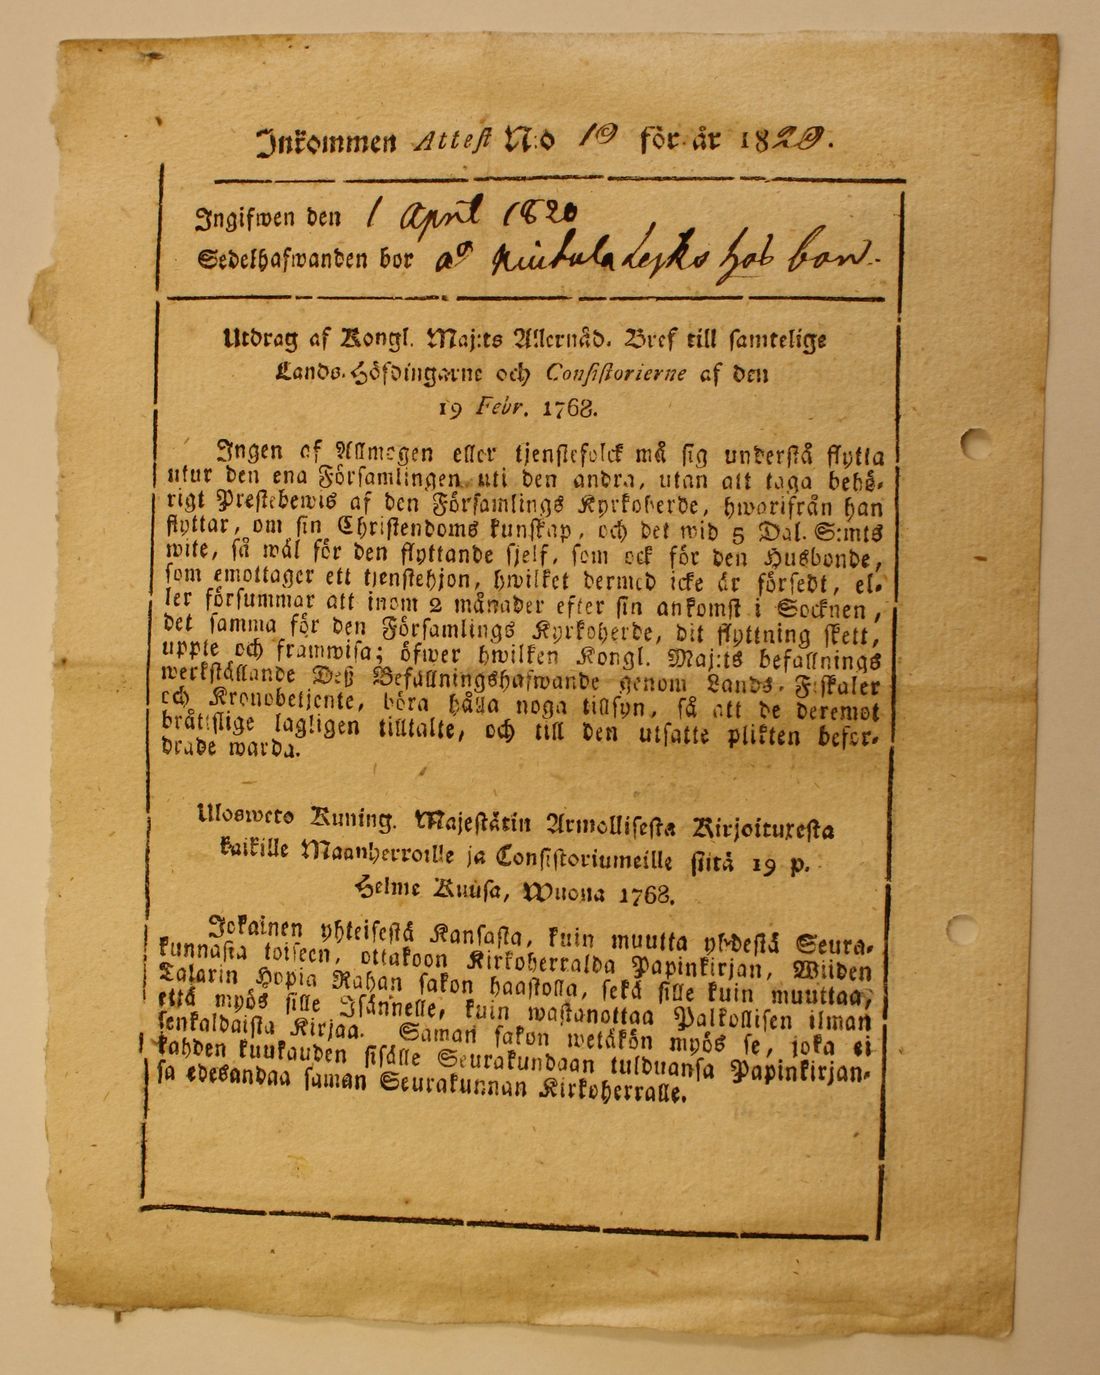 Inkommen Attest N:o 19 för år 1829.
Ingifwen den 1 April 1820
Sedelhafwanden bor
Utdrag af Kongl. Maj:ts Allernåd. Bref till samtelige
Lands-Höfdingarne och Consistorierne af den
19 Febr. 1768.
Ingen af Allmogen eller tjenstefolck må sig understå flytta
utur den ena Församlingen uti den andra, utan att taga behö-
rigt Prestebewis af den Församlings Kyrkoherde, hwarifrån han
flyttar, om sin Christendoms kunskap, och det wid 5 Dal. S:mts
wite, så wäl för den flyttande sjelf, som ock för den Husbonde,
som emottager ett tjenstehjon, hwilket dermed icke är försedt, el-
ler försummar att inom 2 månader efter sin ankomst i Socknen,
det samma för den Församlings Kyrkoherde, dit flyttning skett,
uppte och framwisa; öfwer hwilken Kongl. Maj:ts befallnings
werkställande Deß Befallningshafwande genom Lands-Fiskaler
och Kronobetjente, böra hålla noga tillsyn, så att de deremot
bråttslige lagligen tilltalte, och till den utsatte plikten befor-
drade warda.
Ulosweto Kuning. Majestätin Armollisesta Kirjoituxesta
kaikille Maanherroille ja Consistoriumeille siitä 19 p.
Helme Kuusa, Wuona 1768.
Jokainen yhteisestä Kansasta, kuin muutta yhdestä Seura-
kunnasta toiseen, ottakoon Kirkoherralda Papinkirjan, Wiiden
Talarin Hopia Rahan sakon haastolla, sekä sille kuin muuttaa,
että myös sille Isännelle, kuin wastanottaa Palkollisen ilman
senkaldaista Kirjaa. Saman sakon wetäkön myös se, joka ei
kahden kuukauden sisälle Seurakundaan tulduansa Papinkirjan-
sa edesandaa saman Seurakunnan Kirkoherralle.